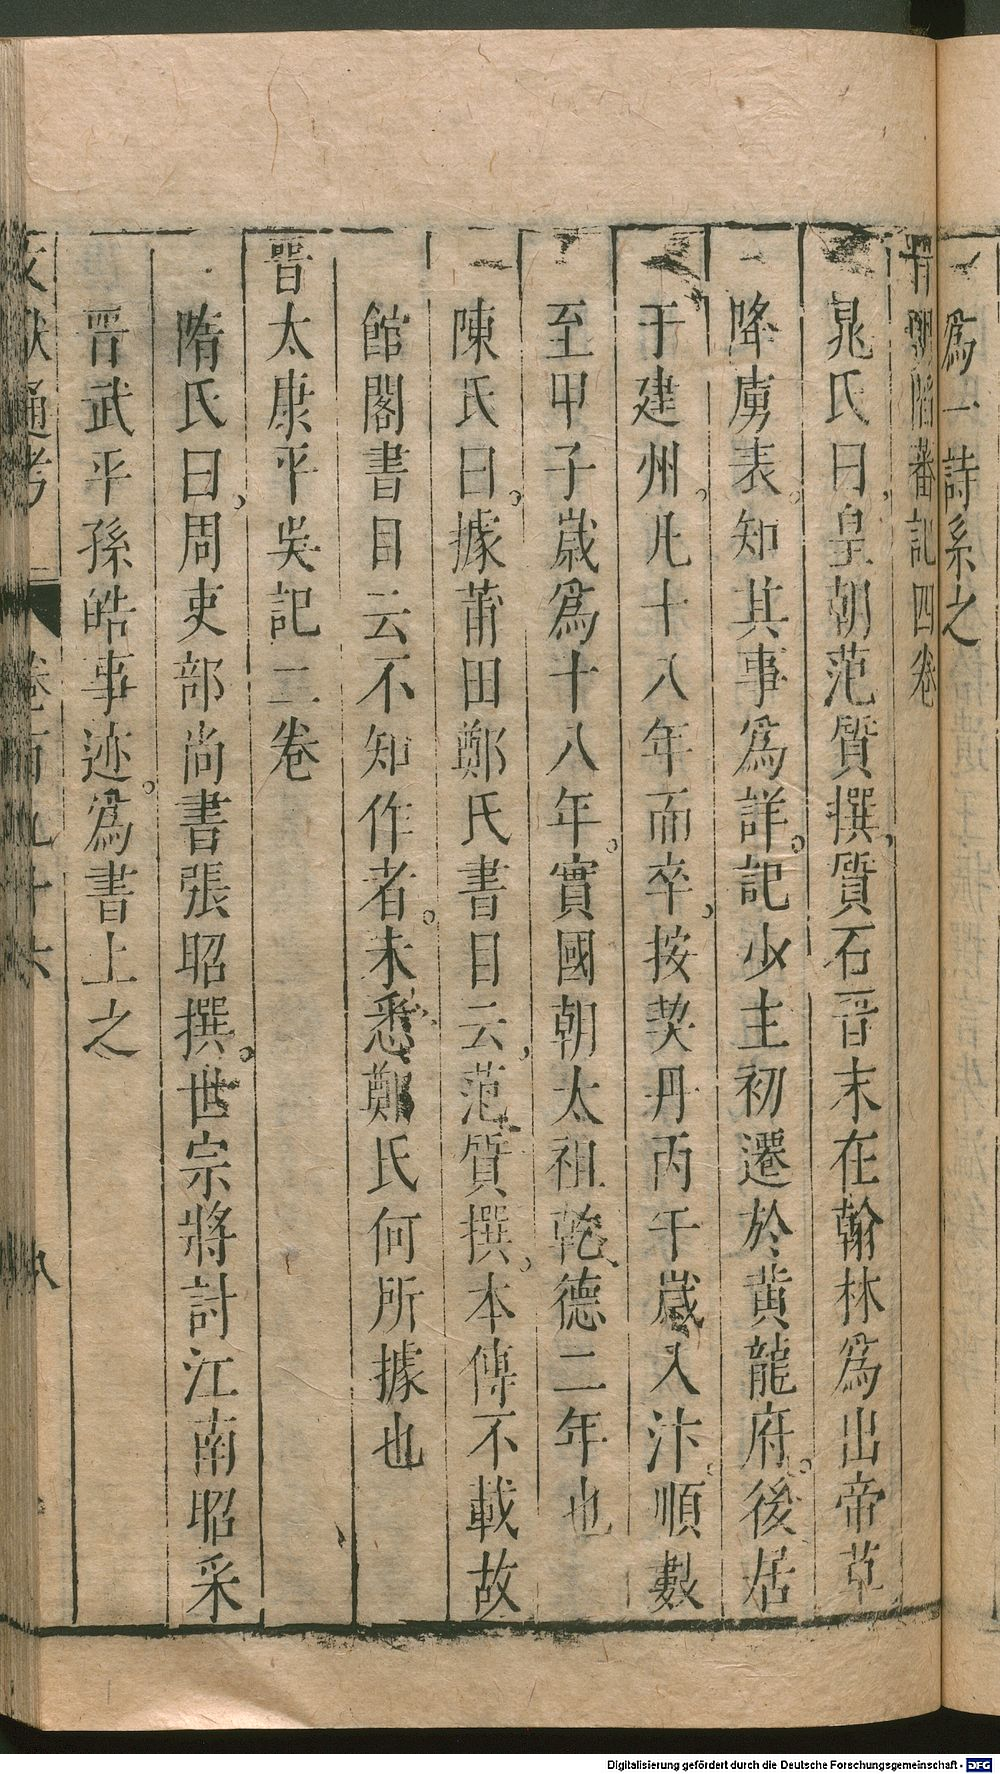 爲一詩系之
晉朝陷蕃記四卷
晁氏曰皇朝范質撰質石晉末在翰林爲出帝草
降虜表知其事爲詳記少主初遷於黃龍府後居
于建州凡十八年而卒按契丹丙午歲入汴順數
至甲子歲爲十八年實國朝太祖乾德二年也
陳氏曰據莆田鄭氏書目云范質撰本傳不載故
館閣書目云不知作者未悉鄭氏何所據也
晉太康平吳記二卷
隋氏曰周吏部尚書張昭撰世宗將討江南昭采
晉武平孫皓事迹爲書上之
文獻通考 卷百九十六 八
Digitalisierung gefördert durch die Deutsche Forschungsgemeinschaft - DFG